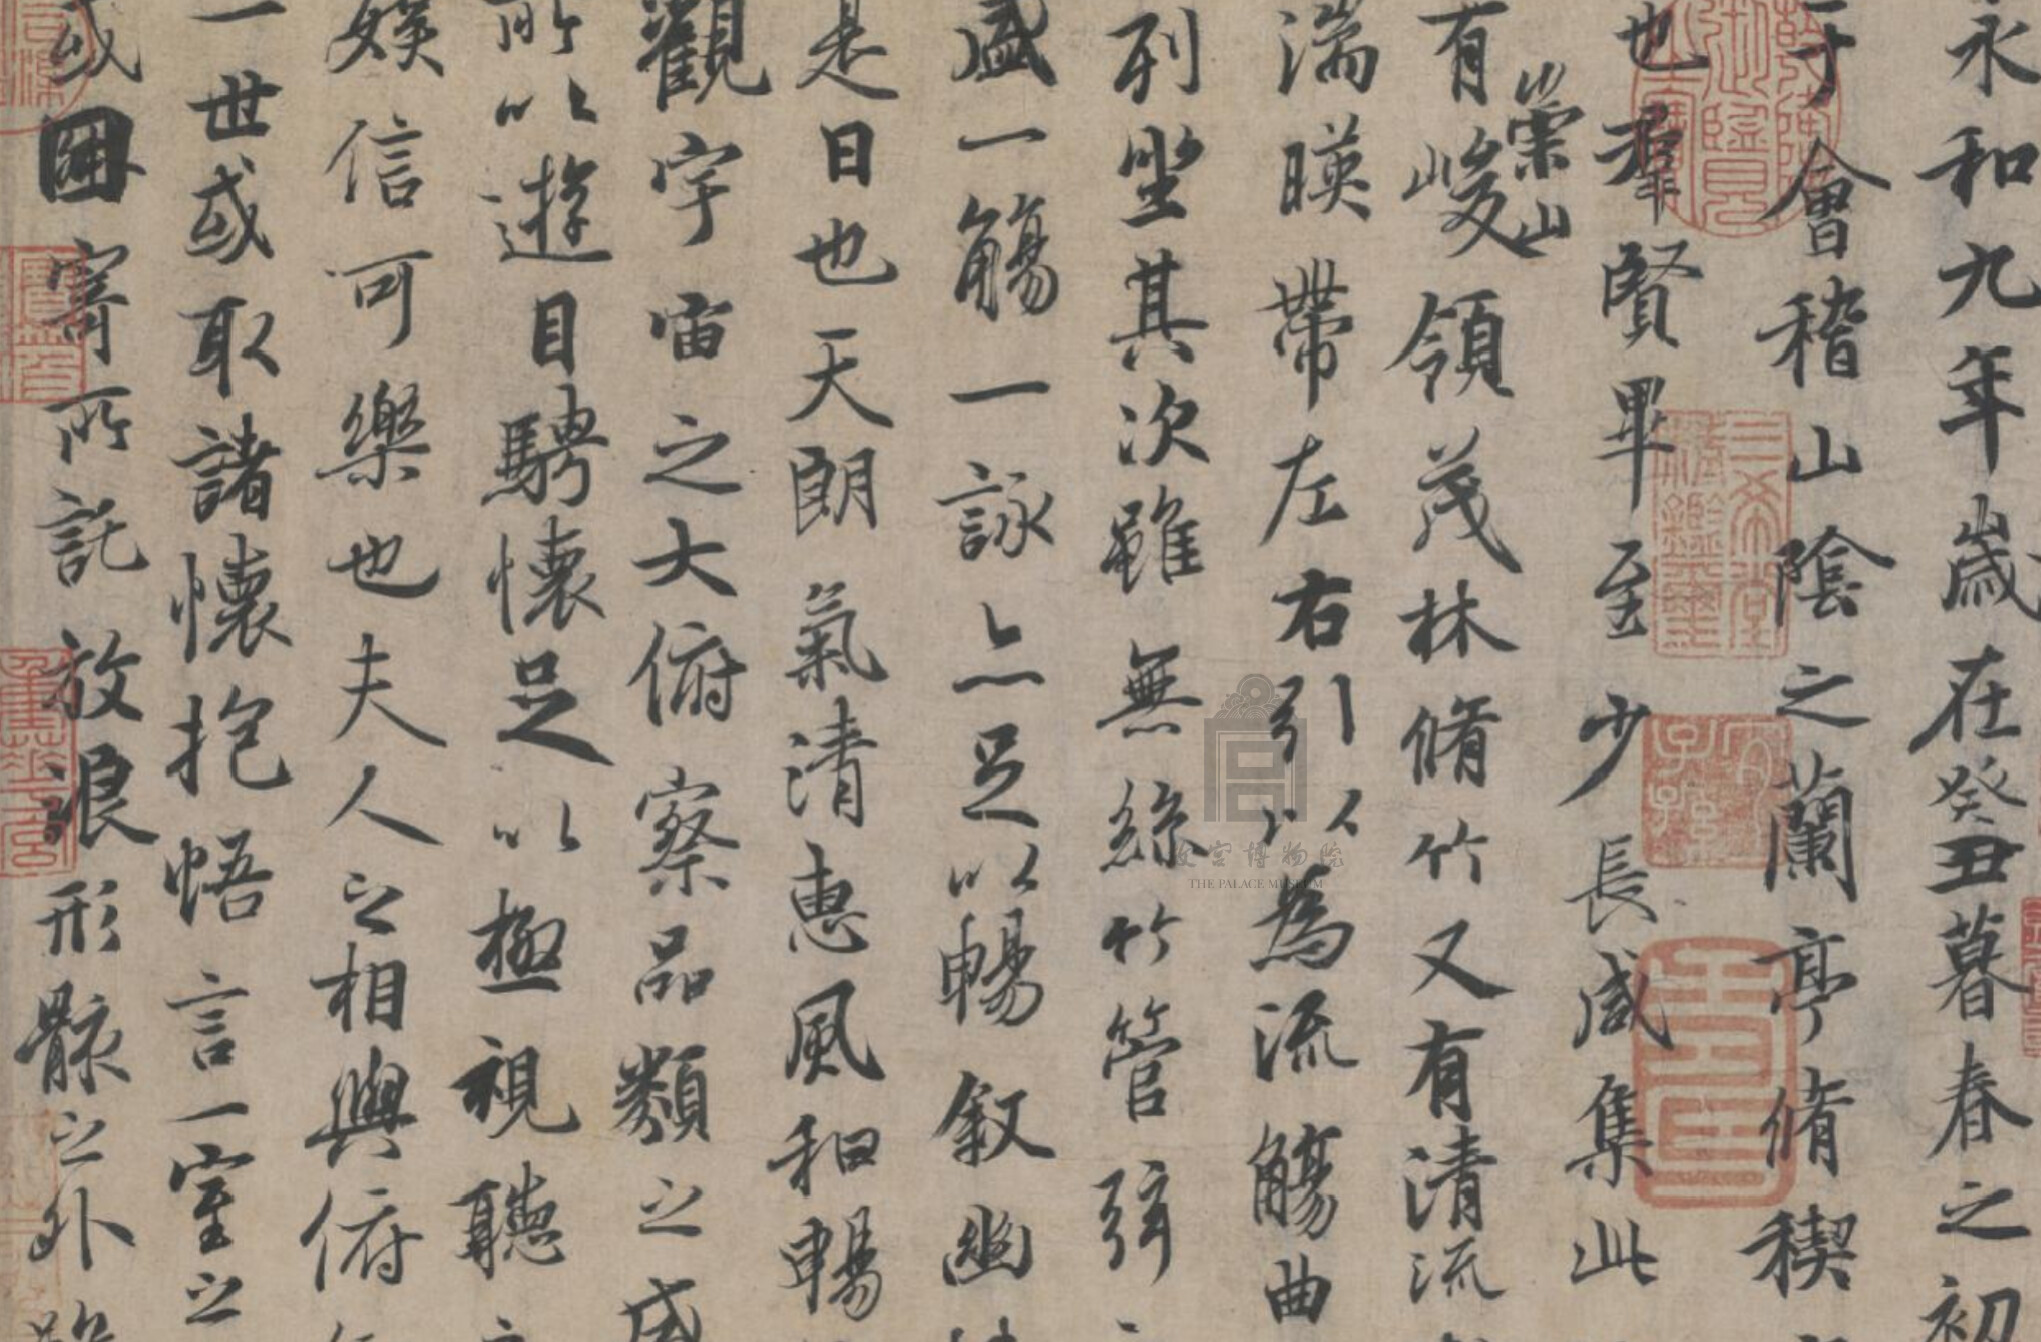 永和九年歲在癸丑暮春之初
于會稽山陰之蘭亭脩稧
也羣賢畢至少長咸集此
有崇山峻領茂林脩竹又有清流
湍暎帶左右引以為流觴曲
列坐其次雖無絲竹管弦
盛一觴一詠亦足以暢敘幽
是日也天朗氣清惠風和暢
觀宇宙之大俯察品類之盛
所以遊目騁懷足以極視聽
娛信可樂也夫人之相與俯
一世或取諸懷抱悟言一室之
或因寄所託放浪形骸之外
三希堂精鑑璽
宜子孫
故宮博物院
THE PALACE MUSEUM